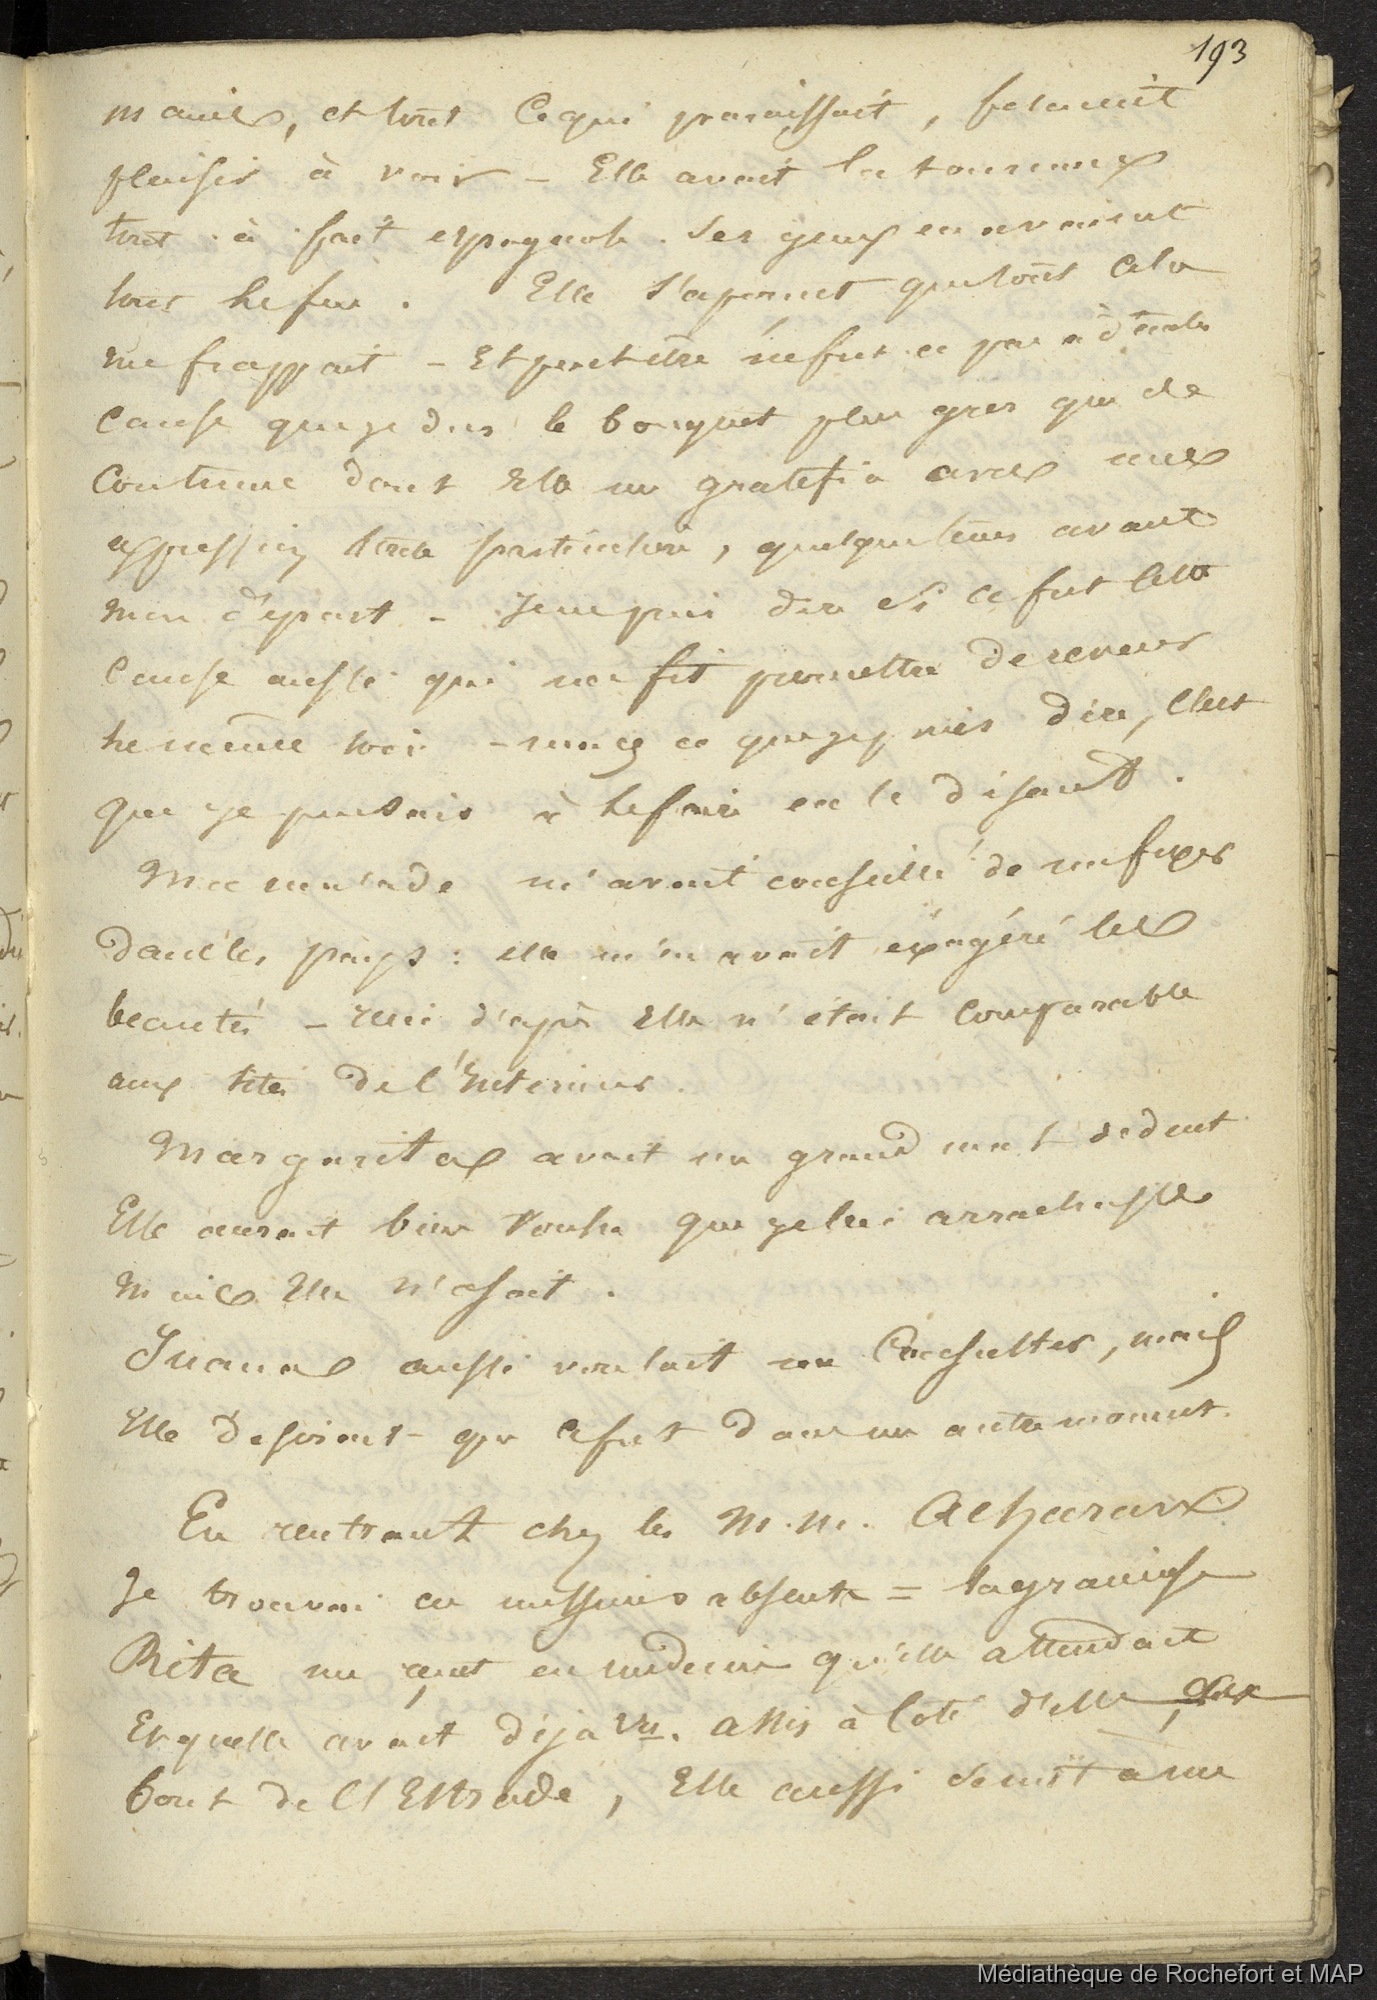 193
mains, et tout ce qui paraissait, faisait
plaisir à voir - Elle avait la tournure
tout à fait espagnole. Ses yeux en avaient
tout le feu. Elle s'aperçut que tout cela
me frappait - Et peut être ne fut ce pas à d'autre
cause que je dus le bouquet plus gros que de
coutume dont Elle me gratifia avec une
expression toute particulière, quelque tems avant
mon départ - Je ne puis dire si ce fut cette
cause aussi qui me fit promettre de revenir
le même soir - mais ce que je puis dire, c'est
que je pensais à le faire en le disant.
Ma malade m'avait conseillé de me fixer
dans les pays : elle m'en avait éxagéré les
beautés - rien d'après Elle n'était comparable
aux sites de l'Interieur.
Margarita avait un grand mal de dent
Elle aurait bien voulu que je lui arrachasse
mais Elle n'osait.
Juana aussi voulait me Consulter, mais
Elle desirait que ce fut dans un autre moment.
En rentrant chez les M.M. Alharax
Je trouvai ces messieurs absents = la gracieuse
Rita me reçut en medecin qu'elle attendait
Et qu'elle avait déja vu. assis à Coté d'elle, au
bout de l'Estrade, Elle aussi se mit à me
Médiathèque de Rochefort et MAP